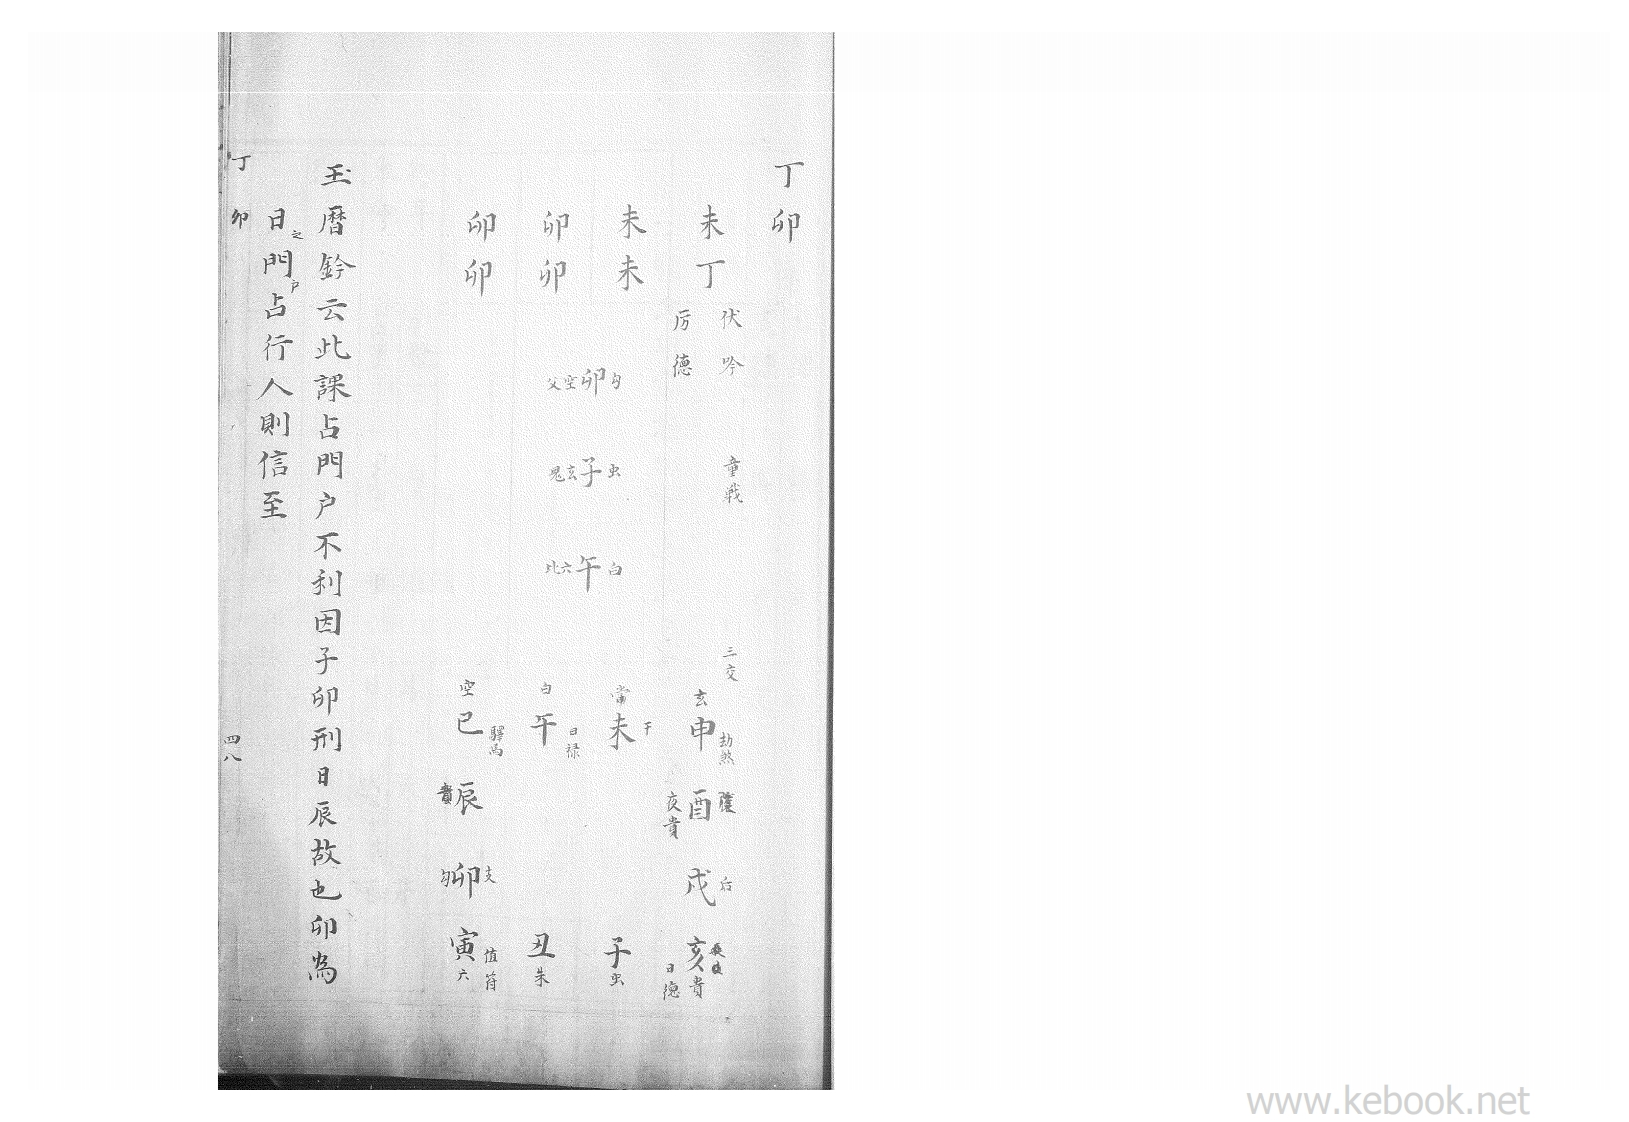 丁卯
未丁
未未
卯卯
卯卯
伏吟
厉德
童戟
三交
勾卯空父
虫子玄鬼
白午六比
玄申劫煞
夜貴酉陰
戌后
亥貴日德
當未干
子虫
白午日禄
丑朱
空巳驛馬
貴辰
勾卯支
寅六值符
玉曆鈐云此課占門户不利因子卯刑日辰故也卯為
日之門户占行人則信至
丁卯
四八
www.kebook.net